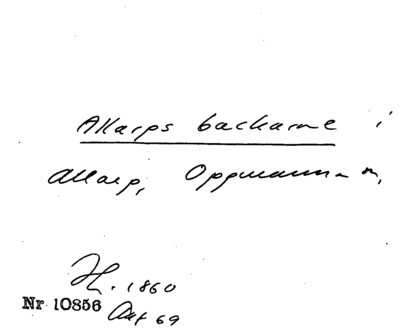 Allarps backarne i
Allarp, Oppmanna n,
H. 1860
Nr 10856 Akt 69